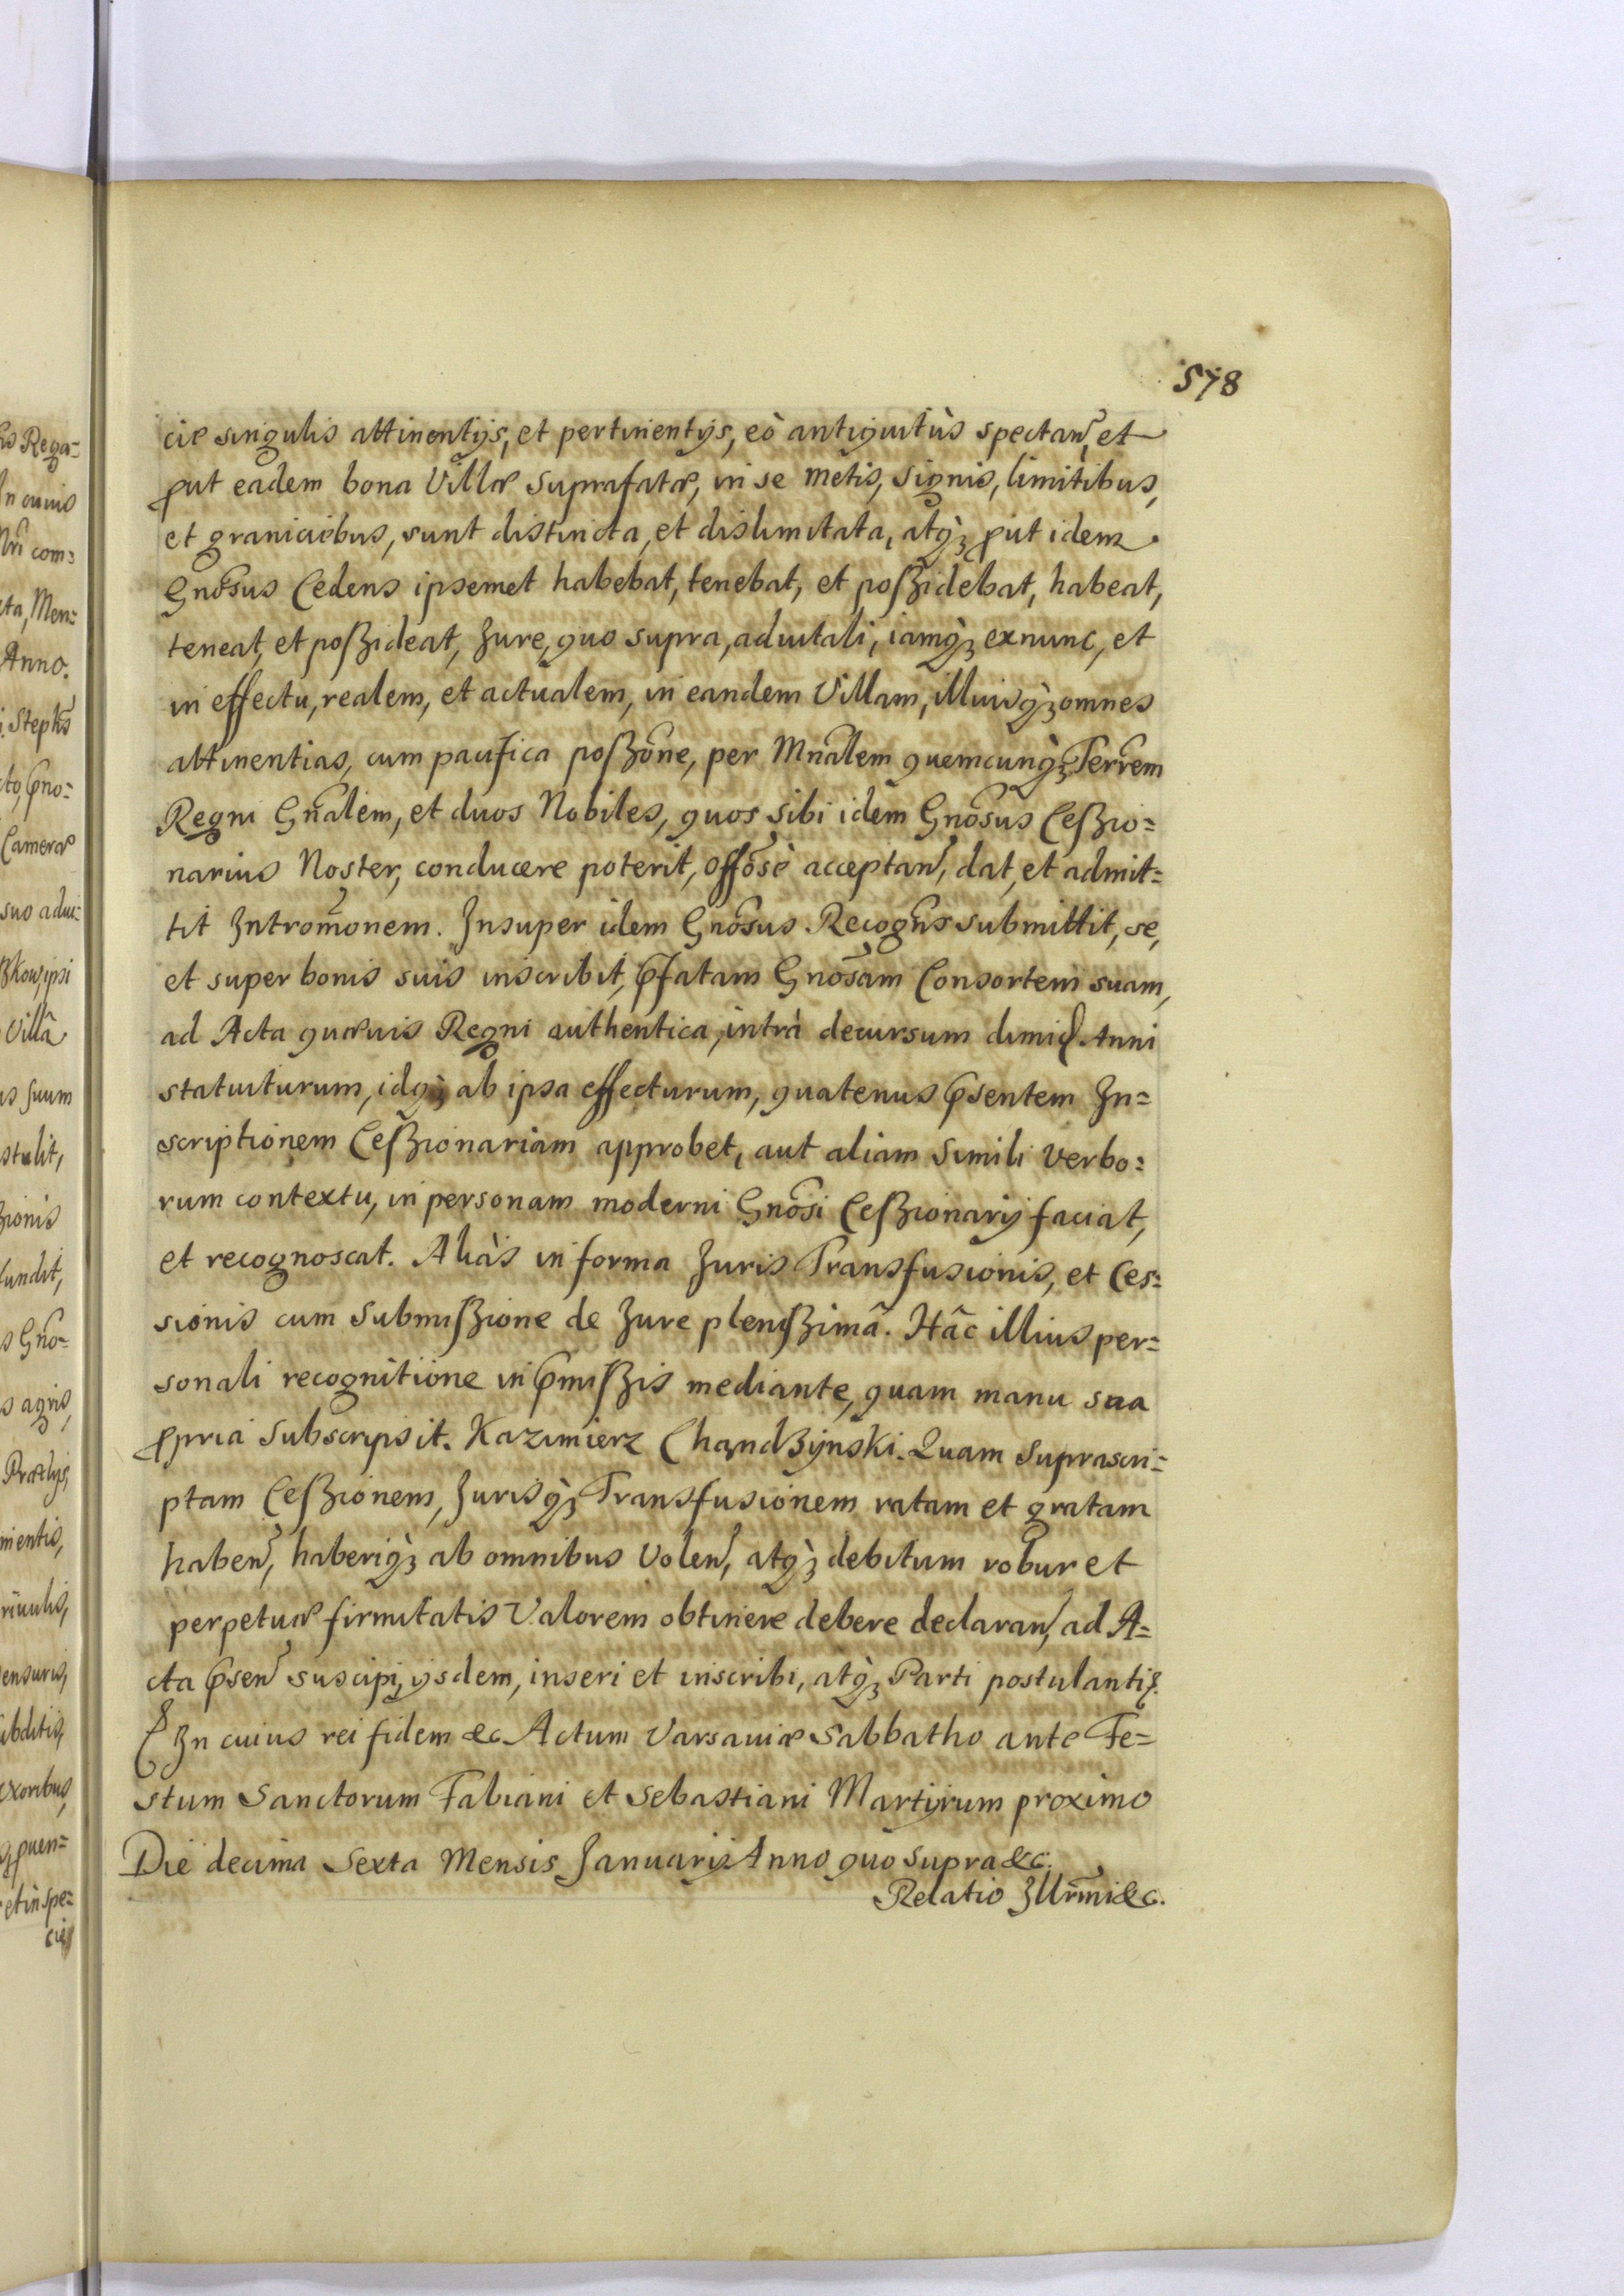 578
cie singulis attinentijs, et pertinentijs, eò antiquitùs spectan̄, et
ꝓut eadem bona Villæ suprafatæ, in se metis, signis, limitibus,
et graniciebus, sunt distincta, et dislimitata, atq̀ꝫ ꝓut idem
Gnōsus Cedens ipsemet habebat, tenebat, et poßidebat, habeat,
teneat, et poßideat, Jure, quo supra, aduitali, iamq̀ꝫ exnunc, et
in effectu, realem, et actualem, in eandem Villam, illiusq̀ꝫ omnes
attinentias, cum pacifica poßōne, per Mnālem quemcunq̀ꝫ Terrēm
Regni Gnālem, et duos Nobiles, quos sibi idem Gnōsus Ceßio=
narius Noster, conducere poterit, offōsè acceptan̄, dat, et admit=
tit Intromōnem. Insuper idem Gnōsus Recogn̄s submittit, se,
et super bonis suis inscribit, p̄fatam Gnōsam Consortem suam,
ad Acta quæuis Regni authentica, intrà decursum dimid Anni
statuiturum, idq̀ꝫ ab ipsa effecturum, quatenus p̄sentem In=
scriptionem Ceßionariam approbet, aut aliam simili Verbo=
rum contextu, in personam moderni Gnōsi Ceßionarij faciat,
et recognoscat. Aliàs in forma Juris Transfusionis, et Ces=
sionis cum Submißione de Jure plenißimâ. Hâc illius per=
sonali recognitione in p̄mißis mediante, quam manu sua
ꝓpria subscripsit. Kazimierz Chądzÿnski. Quam suprascri=
ptam Ceßionem, Jurisq̀ꝫ Transfusionem ratam et gratam
haben̄, haberiq̀ꝫ ab omnibus Volen̄, atq̀ꝫ debitum robur et
perpetuæ firmitatis Valorem obtinere debere declaran̄, ad A=
cta p̄sen̄ suscipi, ijsdem, inseri et inscribi, atq̀ꝫ Parti postulanti
In cuius rei fidem &c. Actum Varsauiæ Sabbatho ante Fe=
stum Sanctorum Fabiani et Sebastiani Martÿrum proximo
Die decima Sexta Mensis Januarij Anno quo supra &c.
Relatio Illr̄mi &c.